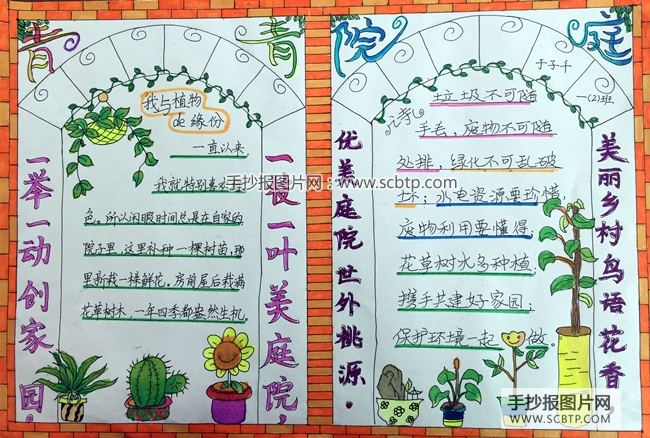 青青院庭
于子千
一(2)班
我与植物
de缘份
一直以来
我就特别喜欢
色。所以闲暇时间总是在自家的
院子里，这里补种一棵树苗，那
里新栽一株鲜花，房前屋后栽满
花草树木，一年四季都盎然生机
一举一动创家园！
一枝一叶美庭院，
诗
垃圾不可随
手丢，废物不可随
处排，绿化不可乱破
坏；水电资源要珍惜
废物利用要懂得；
花草树木多种植；
携手共建好家园；
保护环境一起做。
优美庭院世外桃源。
美丽乡村鸟语花香
手抄报图片网：www.scbtp.com
手抄报图片网
SCBTP.COM